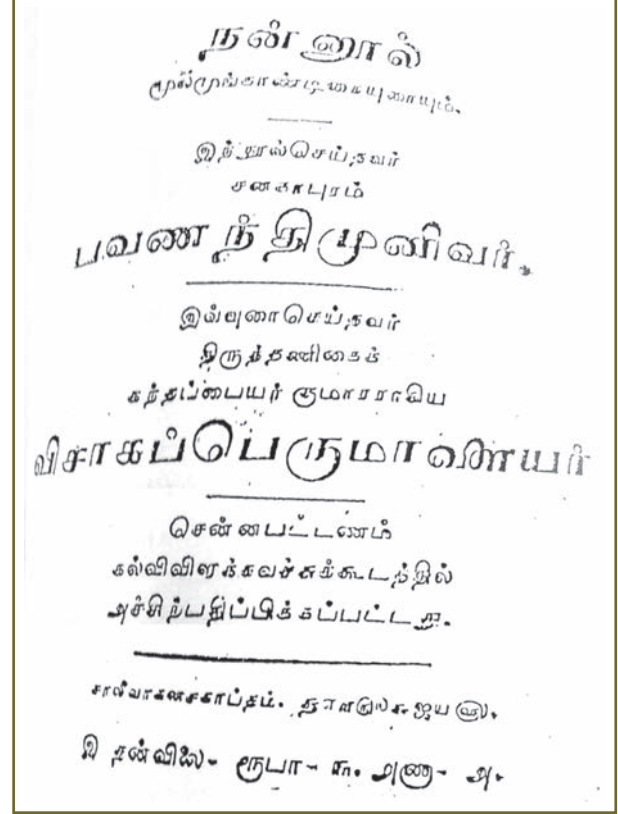 நன்னூல்
மூலமுங்காண்டிகையுரையும்.
இந்நூல்செய்தவர்
சனகாபுரம்
பவணந்திமுனிவர்.
இவ்வுரைசெய்தவர்
திருத்தணிகைக்
கந்தப்பையர் குமாரராகிய
விசாகப்பெருமாளையர்
சென்னபட்டணம்
கல்விவிளக்கவச்சுக்கூடத்தில்
அச்சிற்பதிப்பிக்கப்பட்டது.
சாலிவாகனசகாப்தம். ஜய
இதன்விலை- ரூபா- அணா- அ.